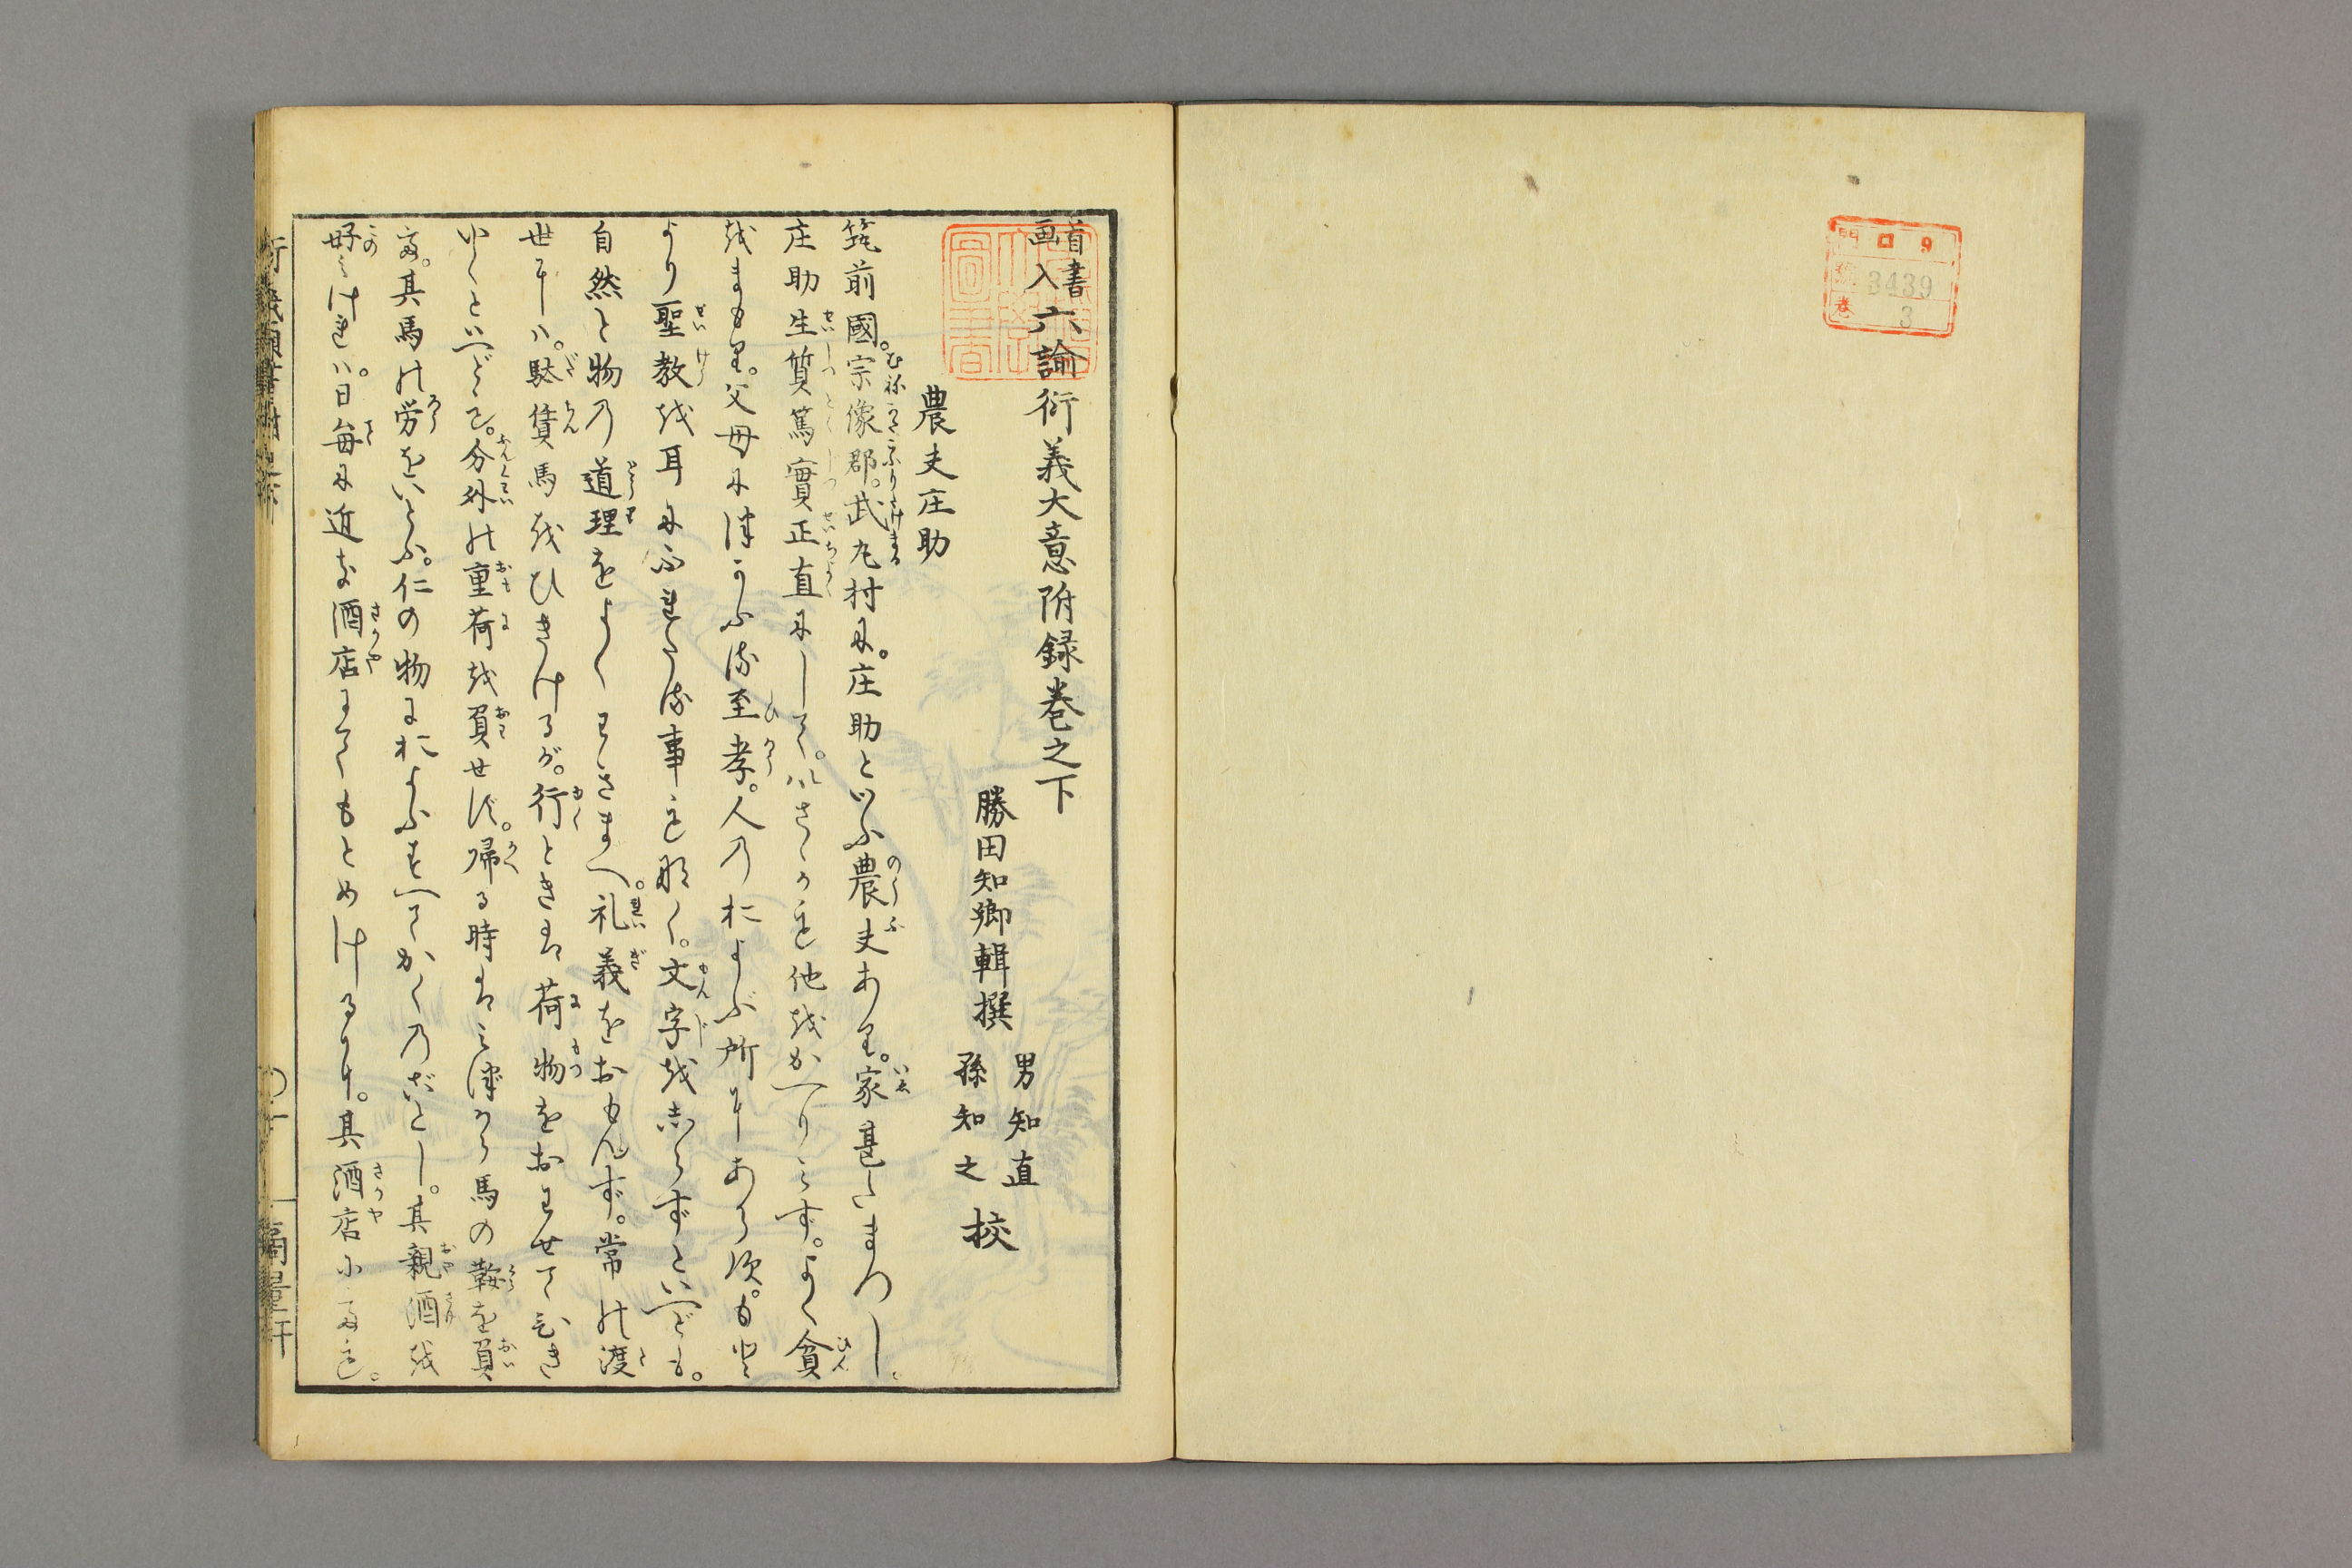 門 ロ 9
號 3439
卷 3
首書
画入
六諭衍義大意附録巻之下
勝田知郷輯撰
男知直
孫知之
校
農夫庄助
筑前國。宗像郡。武丸村に。庄助といふ農夫あり。家甚たまつし。
庄助生質篤實正直にして。いさゝかも他をかへりみず。よく貧
をまもり。父母につかふる至孝。人のおよぶ所にあらず。もと
より聖教を耳にふれたる事も那く。文字を志らずといへども。
自然と物の道理をよくわきまへ。礼義をおもんず。常の渡
世には。駄賃馬をひきけるが。行ときは荷物をおわせてひき
いくといへども。分外の重荷を負せず。帰る時はみづから馬の鞍を負
て。其馬の労をいとふ。仁の物におよふすへてかくのごとし。其親酒を
好みければ。日毎に近き酒店にてもとめけるか。其酒店に